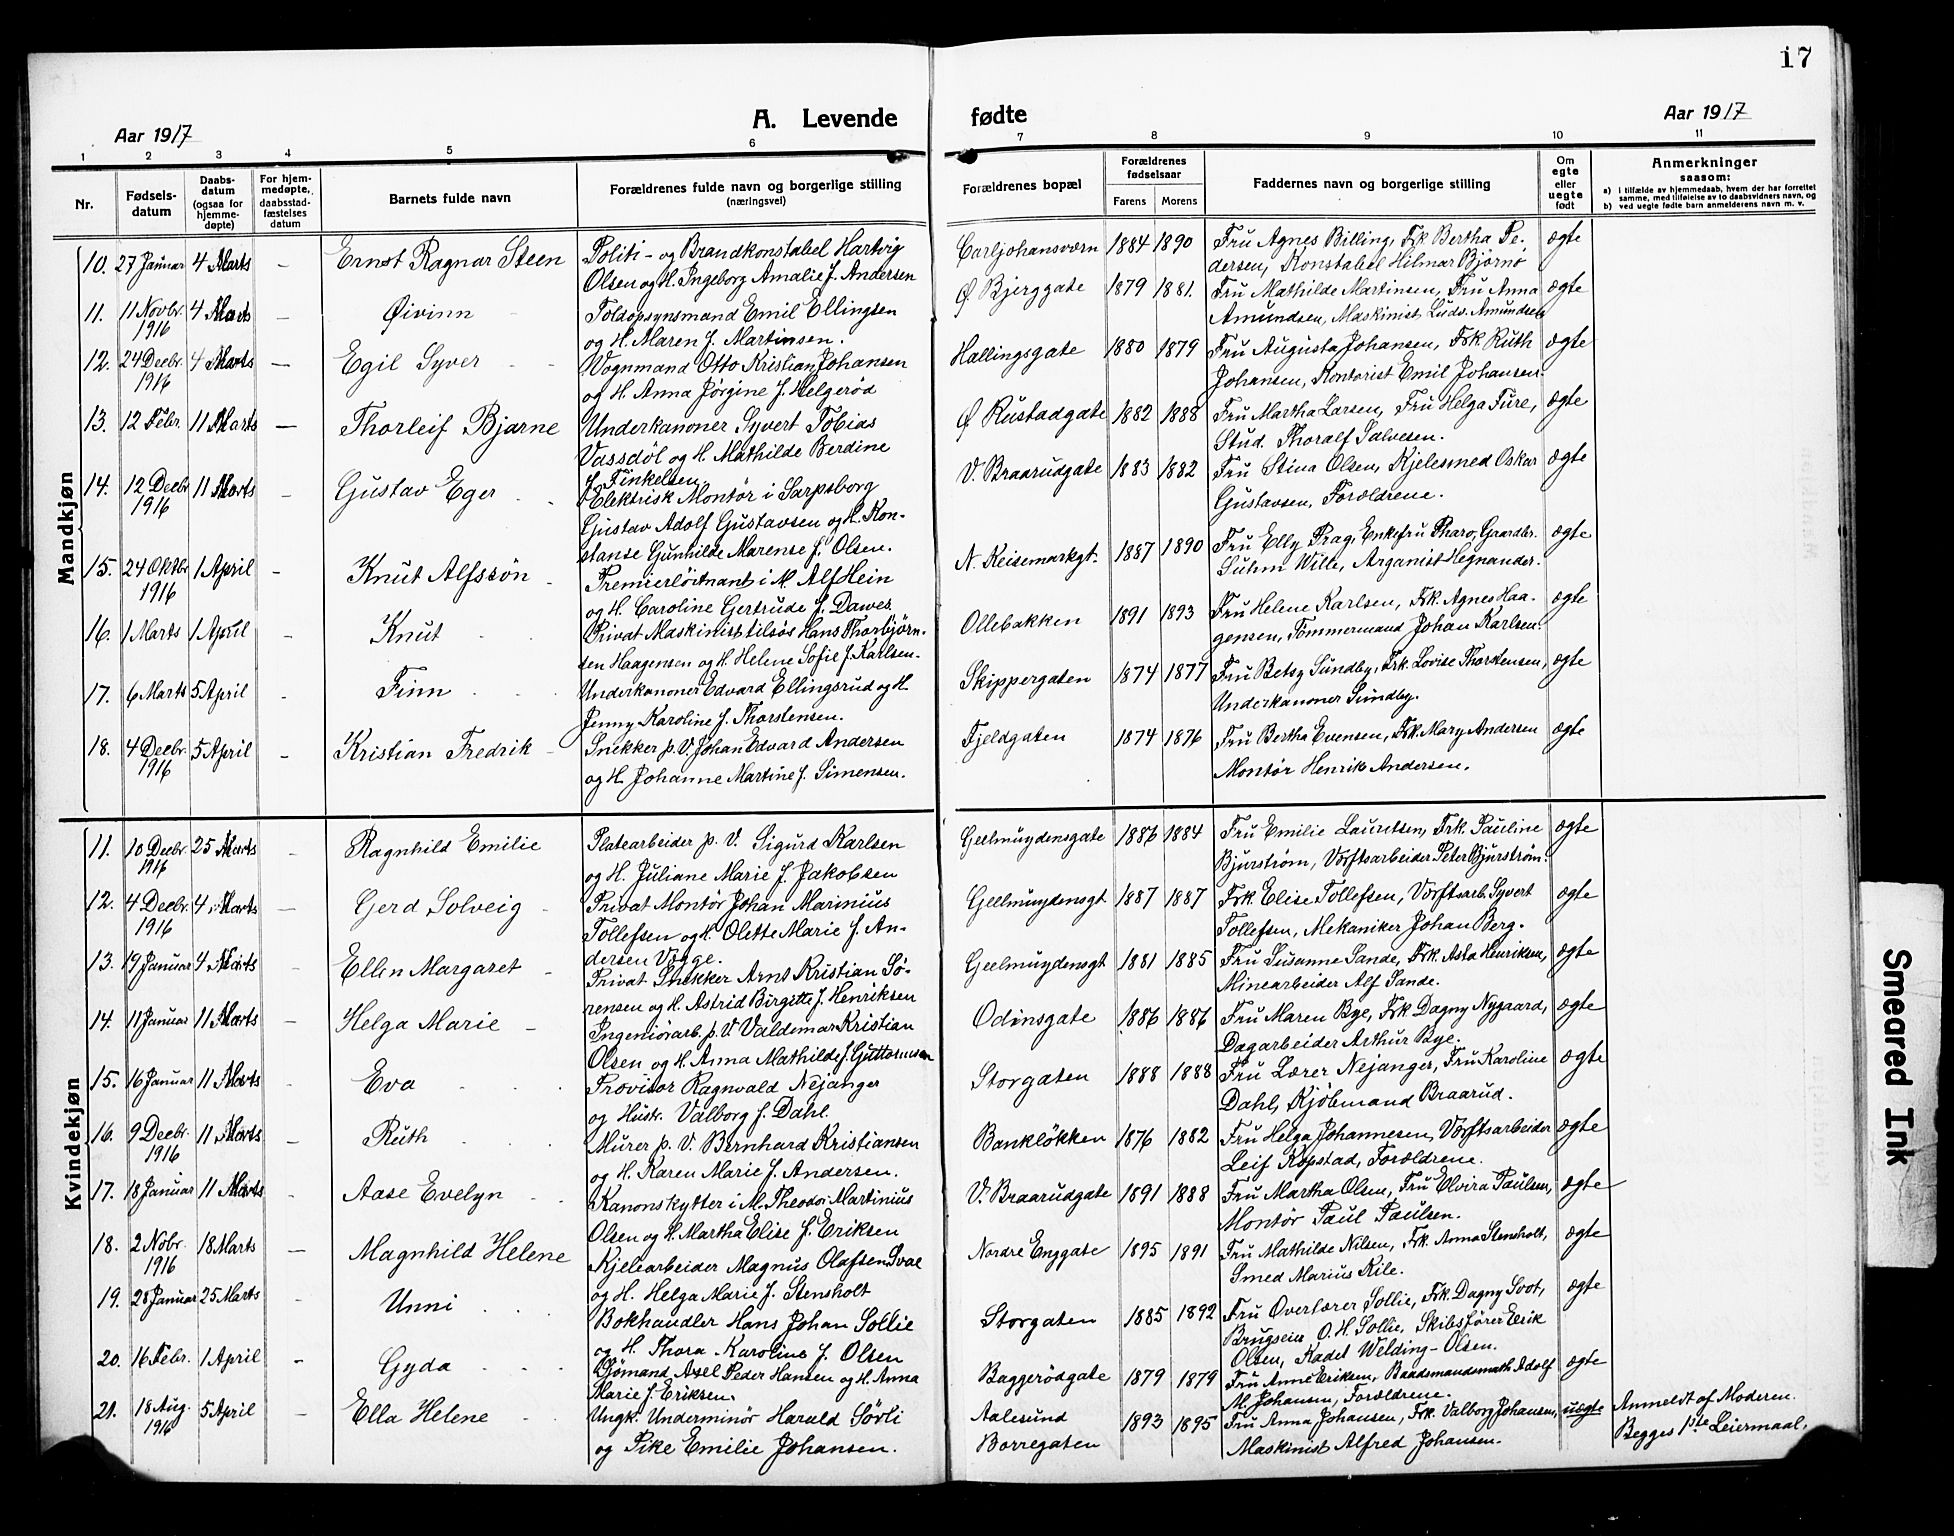 17
Aar 1917 A. Levende fødte Aar 1917
1 2 3 4 5 6 7 8 9 10 11
Nr. Fødsels-datum Daabs-datum (ogsaa for hjemme-døpte) For hjem-medøpte, daabsstad-fæstelses datum Barnets fulde navn Forældrenes fulde navn og borgerlige stilling (næringsvei) Forældrenes bopæl Forældrenes fødselsaar Farens Morens Faddernes navn og borgerlige stilling Om egte eller uegte født Anmerkninger saasom:
a) i tilfælde av hjemmedaab, hvem der har forrettet samme, med tilføielse av to daabsvidners navn, og
b) ved uegte fødte barn anmelderens navn m. v.
Mandkjøn
10. 27 Januar 4 Marts – Ernst Ragnar Steen Politi- og Brandkonstabel Hartvig Carljohansværn 1884 1890 Fru Agnes Billing, Frk Bertha Pe- ægte
Olsen og H. Ingeborg Amalie f. Andersen dersen, Konstabel Hilmar Bjørnø
11. 11 Novbr. 1916 4 Marts – Øivinn Toldopsynsmand Emil Ellingsen Ø Bjerggate 1879 1881. Fru Mathilde Martinsen, Fru Anna ægte
og H. Maren f. Martinsen. Amundsen, Maskinist Ludv. Amundsen
12. 24 Decbr. 1916 4 Marts – Egil Syver Vognmand Otto Kristian Johansen Hallingsgate 1880 1879 Fru Augusta Johansen, Frk Ruth ægte
og H. Anna Jørgine f. Helgerød Johansen, Kontorist Emil Johansen.
13. 12 Febr. 11 Marts – Thorleif Bjarne Underkanoner Syvert Tobias Ø Rustadgate 1882 1888 Fru Martha Larsen, Fru Helga Fure, ægte
Vassdøl og H. Mathilde Berdine Stud. Thoralf Salvesen.
f. Finkelsen
14. 12 Decbr 1916 11 Marts – Gustav Eger Elektrisk Montør i Sarpsborg V. Braarudgate 1883 1882 Fru Stina Olsen, Kjelesmed Oskar ægte
Gustav Adolf Gustavsen og H. Kon- Gustavsen, Forældrene.
stanse Gunhilde Marense f. Olsen.
15. 24 Oktbr 1916 1 April – Knut Alfssøn Premierløitnant i M. Alf Hein N. Keisemarkgt. 1887 1890 Fru Elly Prag, Enkefru Pharo, Gaardbr. ægte
og H. Caroline Gertrude f. Dawes Suhm Wille, Arganist Hegnander.
16. 1 Marts 1 April – Knut Privat Maskinist tilsøs Hans Thorbjørn- Ollebakken 1891 1893 Fru Helene Karlsen, Frk. Agnes Haa- ægte
sen Haagensen og H. Helene Sofie f. Karlsen. gensen, Tømmermand Johan Karlsen.
17. 6 Marts 5 April – Finn Underkanoner Edvard Ellingsrud og H. Skippergaten 1874 1877 Fru Betsy Sundby, Frk. Lovise Thorstensen, ægte
Jenny Karoline f. Thorstensen. Underkanoner Sundby.
18. 4 Decbr. 1916 5 April – Kristian Fredrik Snekker p. V. Johan Edvard Andersen Fjeldgaten 1874 1876 Fru Bertha Evensen, Frk. Mary Andersen ægte
og H. Johanne Martine f. Simensen. Montør Henrik Andersen.
Kvindekjøn
11. 10 Decbr. 1916 25 Marts – Ragnhild Emilie Platearbeider p. V. Sigurd Karlsen Geelmuydensgate 1886 1884 Fru Emilie Lauritsen, Frk. Pauline ægte
og H. Juliane Marie f. Jakobsen Bjurstrøm, Værftsarbeider Peter Bjurstrøm.
12. 4 Decbr. 1916 4 Marts – Gerd Solveig Privat Montør Johan Marinius Geelmuydensgt 1887 1887 Frk. Elise Tollefsen, Værftsarb. Syvert ægte
Tollefsen og H. Olette Marie f. An- Tollefsen, Mekaniker Johan Berg.
dersen Vegge.
13. 19 Januar 4 Marts – Ellen Margaret Privat Snekker Arnt Kristian Sø- Geelmuydensgt 1881 1885 Fru Susanne Sande, Frk. Asta Henriksen, ægte
rensen og H. Astrid Birgitte f. Henriksen Minearbeider Alf Sande.
14. 11 Januar 11 Marts – Helga Marie Ingeniørarb. p. V. Valdemar Kristian Odinsgate 1886 1886 Fru Maren Bye, Frk Dagny Nygaard, ægte
Olsen og H. Anna Mathilde f. Guttormsen Dagarbeider Arthur Bye.
15. 16 Januar 11 Marts – Eva Provisor Ragnvald Nejanger Storgaten 1888 1888 Fru Lærer Nejanger, Fru Karoline ægte
og Hustr. Valborg f. Dahl. Dahl, Kjøbmand Braarud.
16. 9 Decbr. 1916 11 Marts – Ruth Murer p. V. Bernhard Kristiansen Bankløkken 1876 1882 Fru Helga Johannesen, Værftsarbeider ægte
og H. Karen Marie f. Andersen. Leif Kopstad, Forældrene.
17. 18 Januar 11 Marts – Aase Evelyn Kanonskytter i M. Theodor Martinius V. Braarudgate 1891 1888 Fru Martha Olsen, Fru Elvira Paulsen, ægte
Olsen og H. Martha Elise f. Eriksen Montør Paul Paulsen.
18. 2 Nobr. 1916 18 Marts – Magnhild Helene Kjelearbeider Magnus Olafsen Svae Nordre Enggate 1895 1891 Fru Mathilde Nilsen, Frk. Anna Stensholt, ægte
og H. Helga Marie f. Stensholt Smed Marius Kile.
19. 28 Januar 25 Marts – Unni Bokhandler Hans Johan Sollie Storgaten 1885 1892 Fru Overlærer Sollie, Frk. Dagny Soot, ægte
og H. Thora Karoline f. Olsen Brugseier O. H. Sollie, Skibsfører Eerik
Olsen, Kadet Welding-Olsen.
20. 16 Febr. 1 April – Gyda Sjømand Axel Peder Hansen og H. Anna Baggerødgate 1879 1879 Fru Anne Eriksen, Baadsmandsmath Adolf ægte
Marie f. Eriksen. M. Johansen, Forældrene.
21. 18 Aug. 1916 5 April – Ella Helene Ungk. Underminør Harald Sørli Aalesund 1893 1895 Fru Anna Johansen, Frk. Valborg Johansen, uægte Anmeldt af Moderen.
og Pike Emilie Johansen. Borregaten Maskinist Alfred Johansen. Begges 1ste Leiermaal.
Smeared Ink